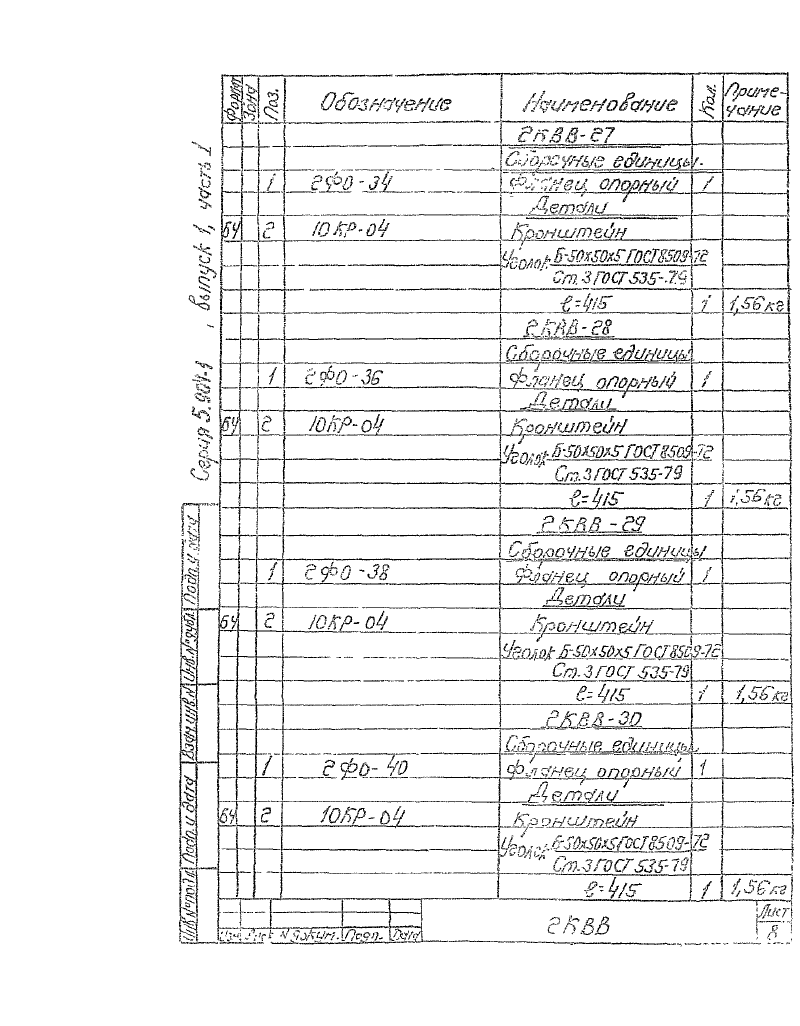 Формат Зона Поз. Обозначение Наименование Кол. Приме-
чание
2КВВ-27
Сборочные единицы.
1 2ФО-34 Фланец опорный 1
Детали
БЧ 2 10КР-04 Кронштейн
Уголок Б-50х50х5 ГОСТ 8509-72
Ст.3 ГОСТ 535-79
ℓ=415 1 1,56 кг
2КВВ-28
Сборочные единицы
1 2ФО-36 Фланец опорный 1
Детали
БЧ 2 10КР-04 Кронштейн
Уголок Б-50х50х5 ГОСТ 8509-72
Ст.3 ГОСТ 535-79
ℓ=415 1 1,56 кг
2КВВ-29
Сборочные единицы
1 2ФО-38 Фланец опорный 1
Детали
БЧ 2 10КР-04 Кронштейн
Уголок Б-50х50х5 ГОСТ 8509-72
Ст.3 ГОСТ 535-79
ℓ=415 1 1,56 кг
2КВВ-30
Сборочные единицы
1 2ФО-40 Фланец опорный 1
Детали
БЧ 2 10КР-04 Кронштейн
Уголок Б-50х50х5 ГОСТ 8509-72
Ст.3 ГОСТ 535-79
ℓ=415 1 1,56 кг
2КВВ
Лист
8
Изм Лист N докум. Подп. Дата
Серия 5.904-1, выпуск 1, часть 1
Инв.№ подл. Подп. и дата Взам.инв.№ Инв.№ дубл. Подп. и дата